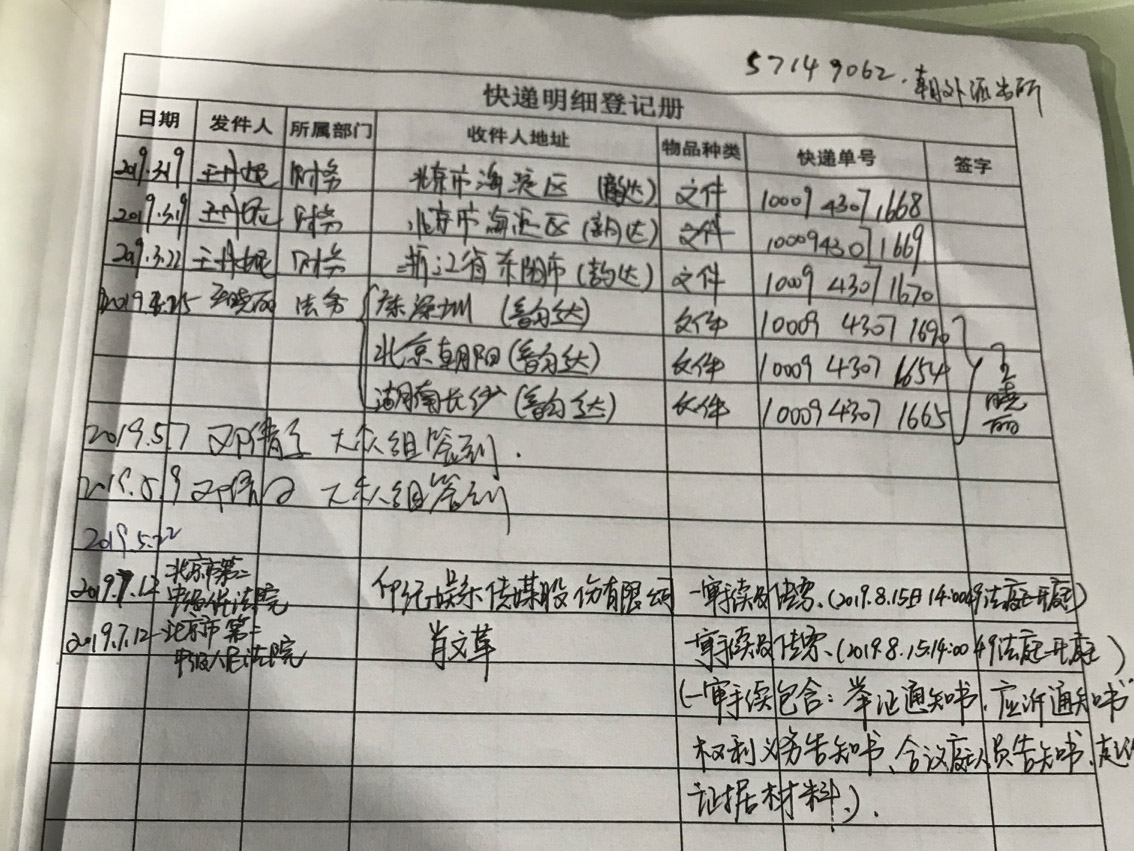 57149062. 朝外派出所
快递明细登记册
日期 发件人 所属部门 收件人地址 物品种类 快递单号 签字
2019.3.19 财务 北京市海淀区 (韵达) 文件 10009 4307 1668
2019.3.19 财务 北京市海淀区 (韵达) 文件 10009 4307 1669
2019.3.22 财务 浙江省东阳市 (韵达) 文件 10009 4307 1670
法务 深圳 (韵达) 文件 10009 4307 1690
北京朝阳 (韵达) 文件 10009 4307 1654
湖南长沙 (韵达) 文件 10009 4307 1665
2019.5.7 大众组签到.
2019.5.9 大众组签到
2019.5.22
2019.7.12 北京市第二中级人民法院 印纪娱乐传媒股份有限公司 一审手续及传票、(2019.8.15日14:00 49法庭开庭)
2019.7.12 北京市第二中级人民法院 肖文革 一审手续及传票、(2019.8.15 14:00 49法庭开庭)
(一审手续包含:举证通知书、应诉通知书
权利义务告知书、合议庭人员告知书、
证据材料、).